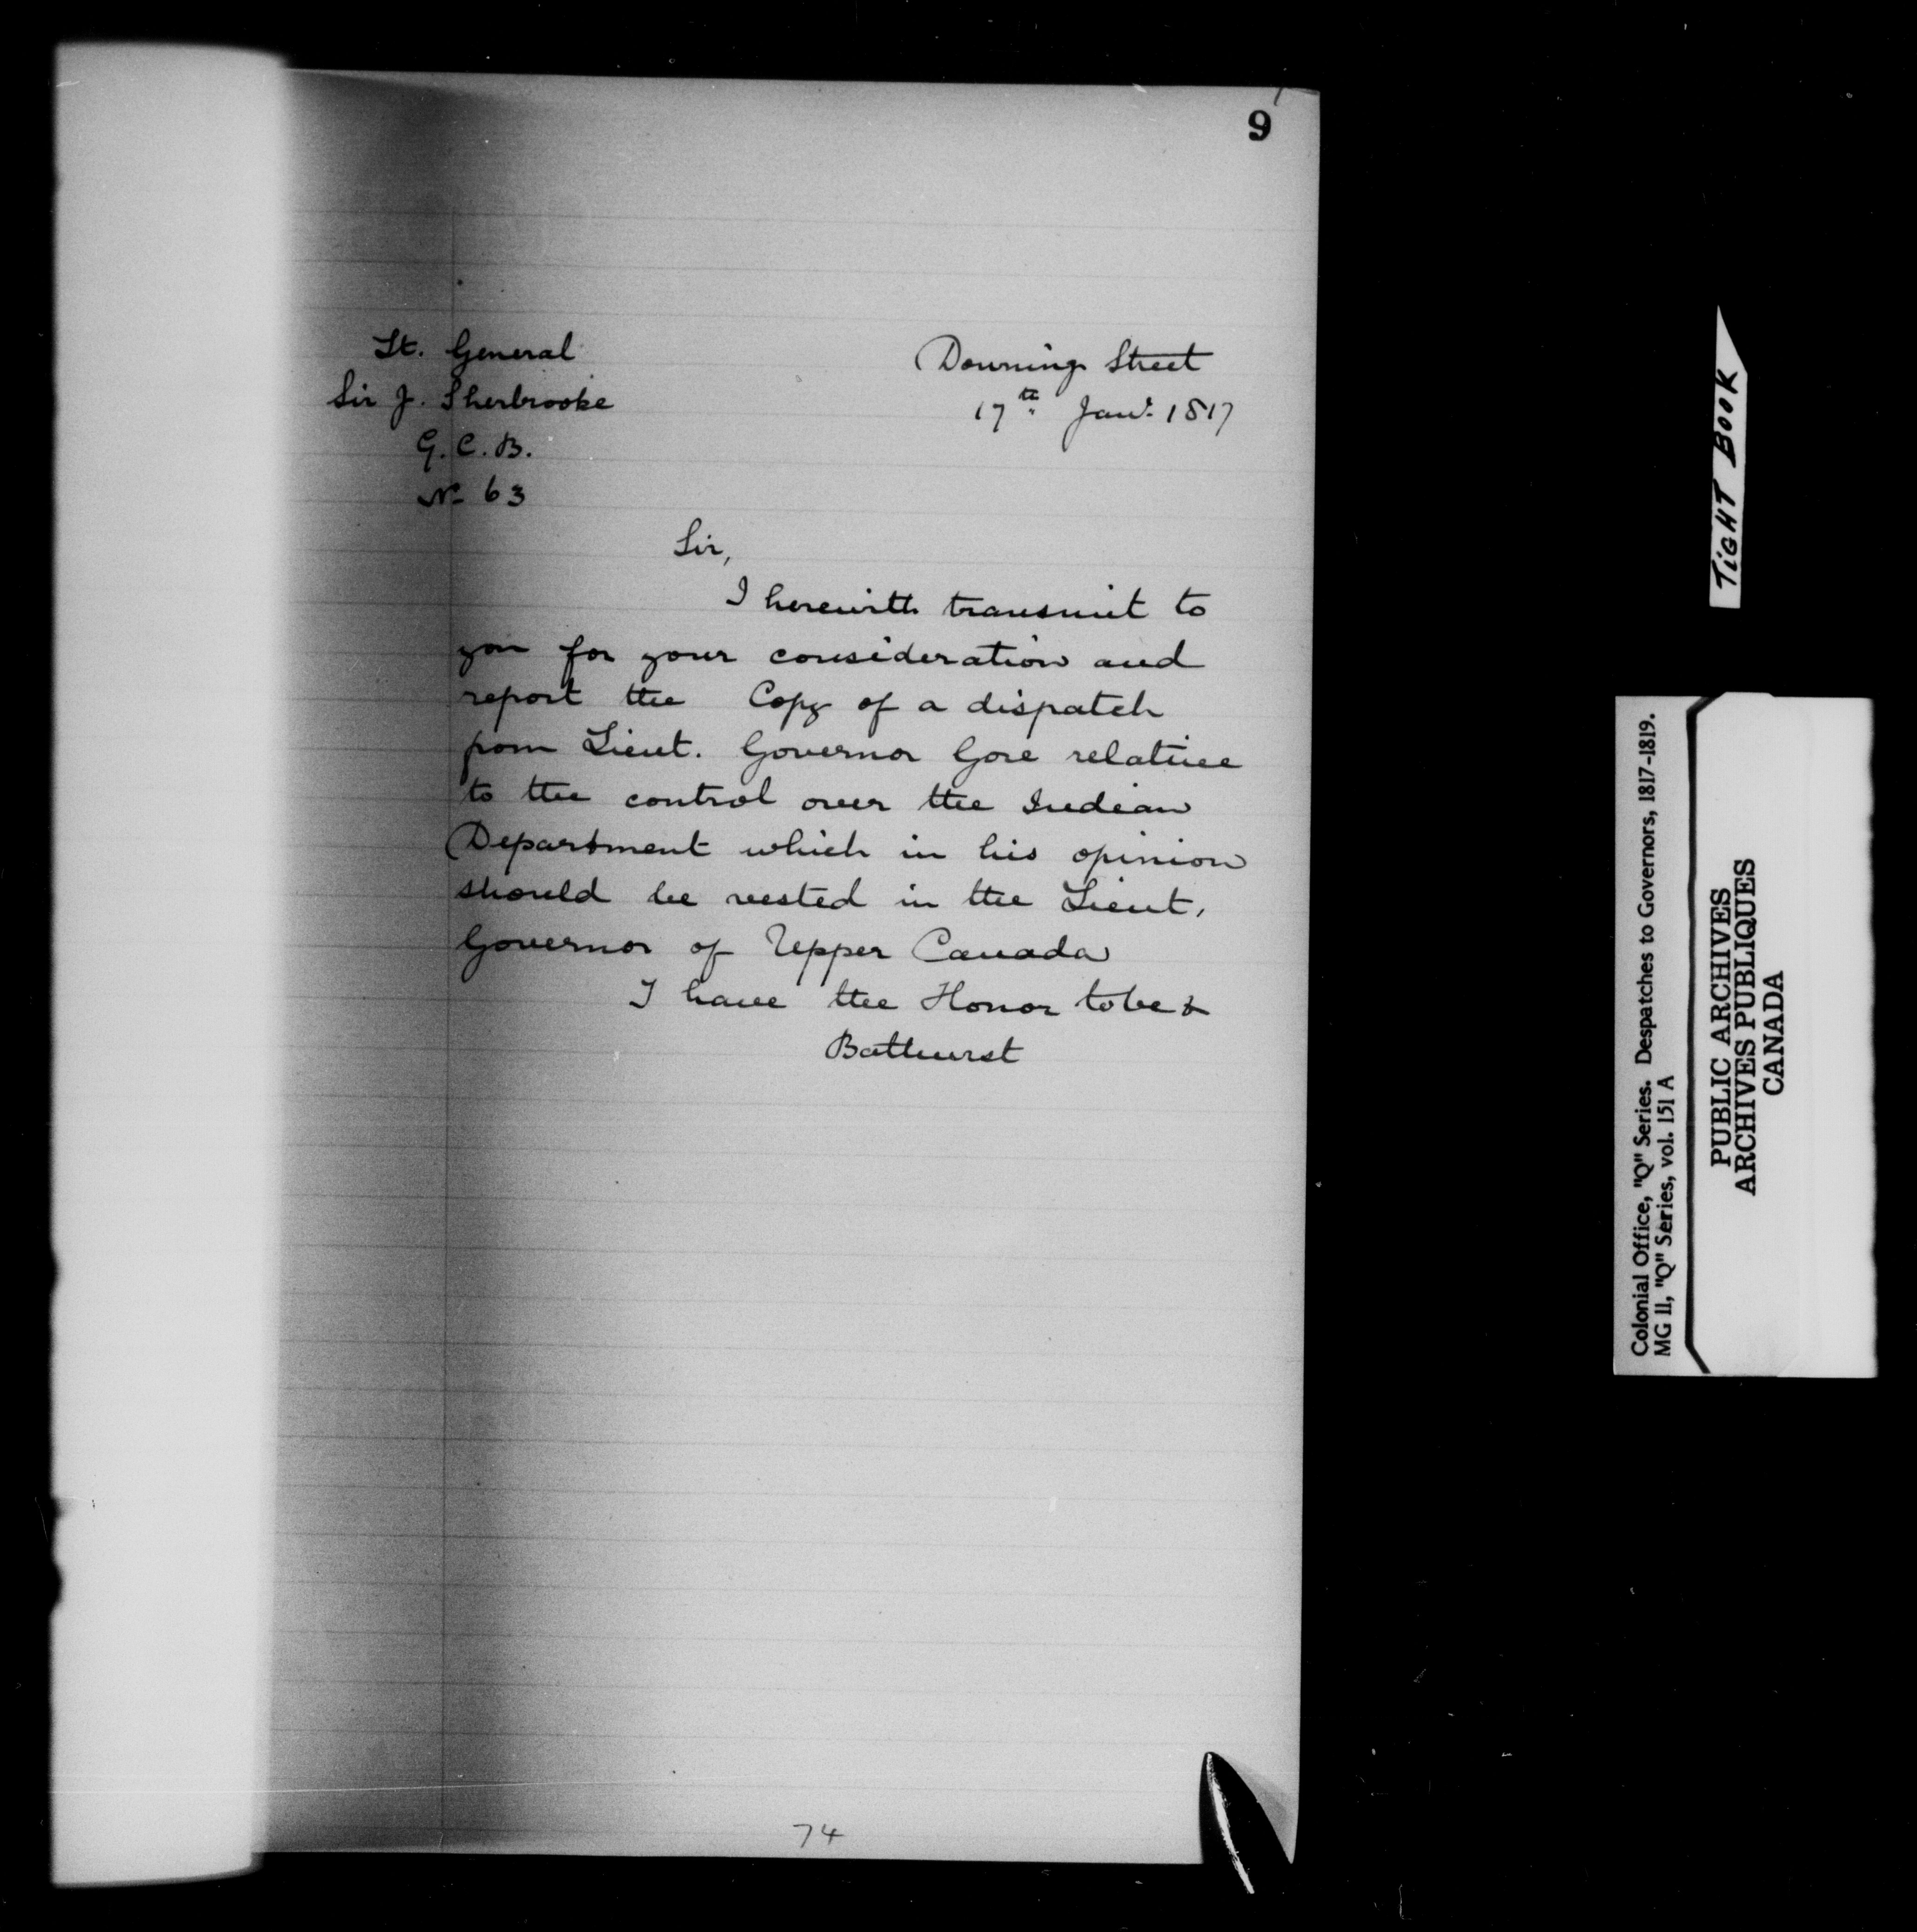 9
Lt. General
Sir J. Sherbrooke
G.C.B.
No 63
Downing Street
17th Jany. 1817
Sir,
I herewith transmit to
you for your consideration and
report the Copy of a dispatch
from Lieut. Governor Gore relative
to the control over the Indian
Department which in his opinion
should be vested in the Lieut.
Governor of Upper Canada
I have the Honor to be &
Bathurst
74
TIGHT BOOK
Colonial Office, "Q" Series. Despatches to Governors, 1817-1819.
MG 11, "Q" Series, vol. 151 A
PUBLIC ARCHIVES
ARCHIVES PUBLIQUES
CANADA